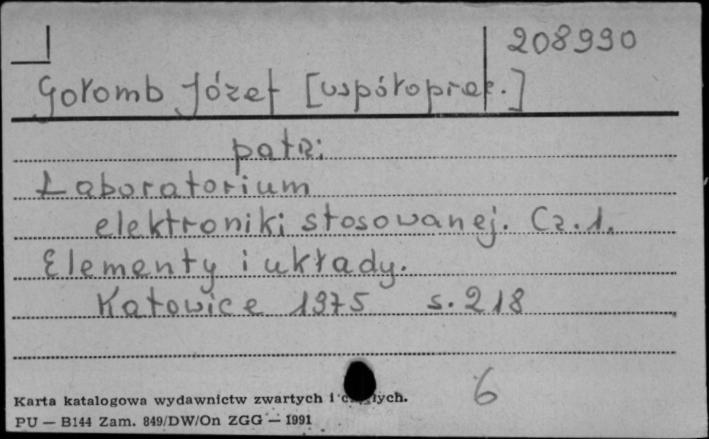 208990
Gołomb Józef [współoprac.]
patrz:
Laboratorium
elektroniki stosowanej. Cz. 1.
Elementy i układy.
Katowice 1975 s. 218
6
Karta katalogowa wydawnictw zwartych i
PU — B144 Zam. 849/DW/On ZGG — 1991